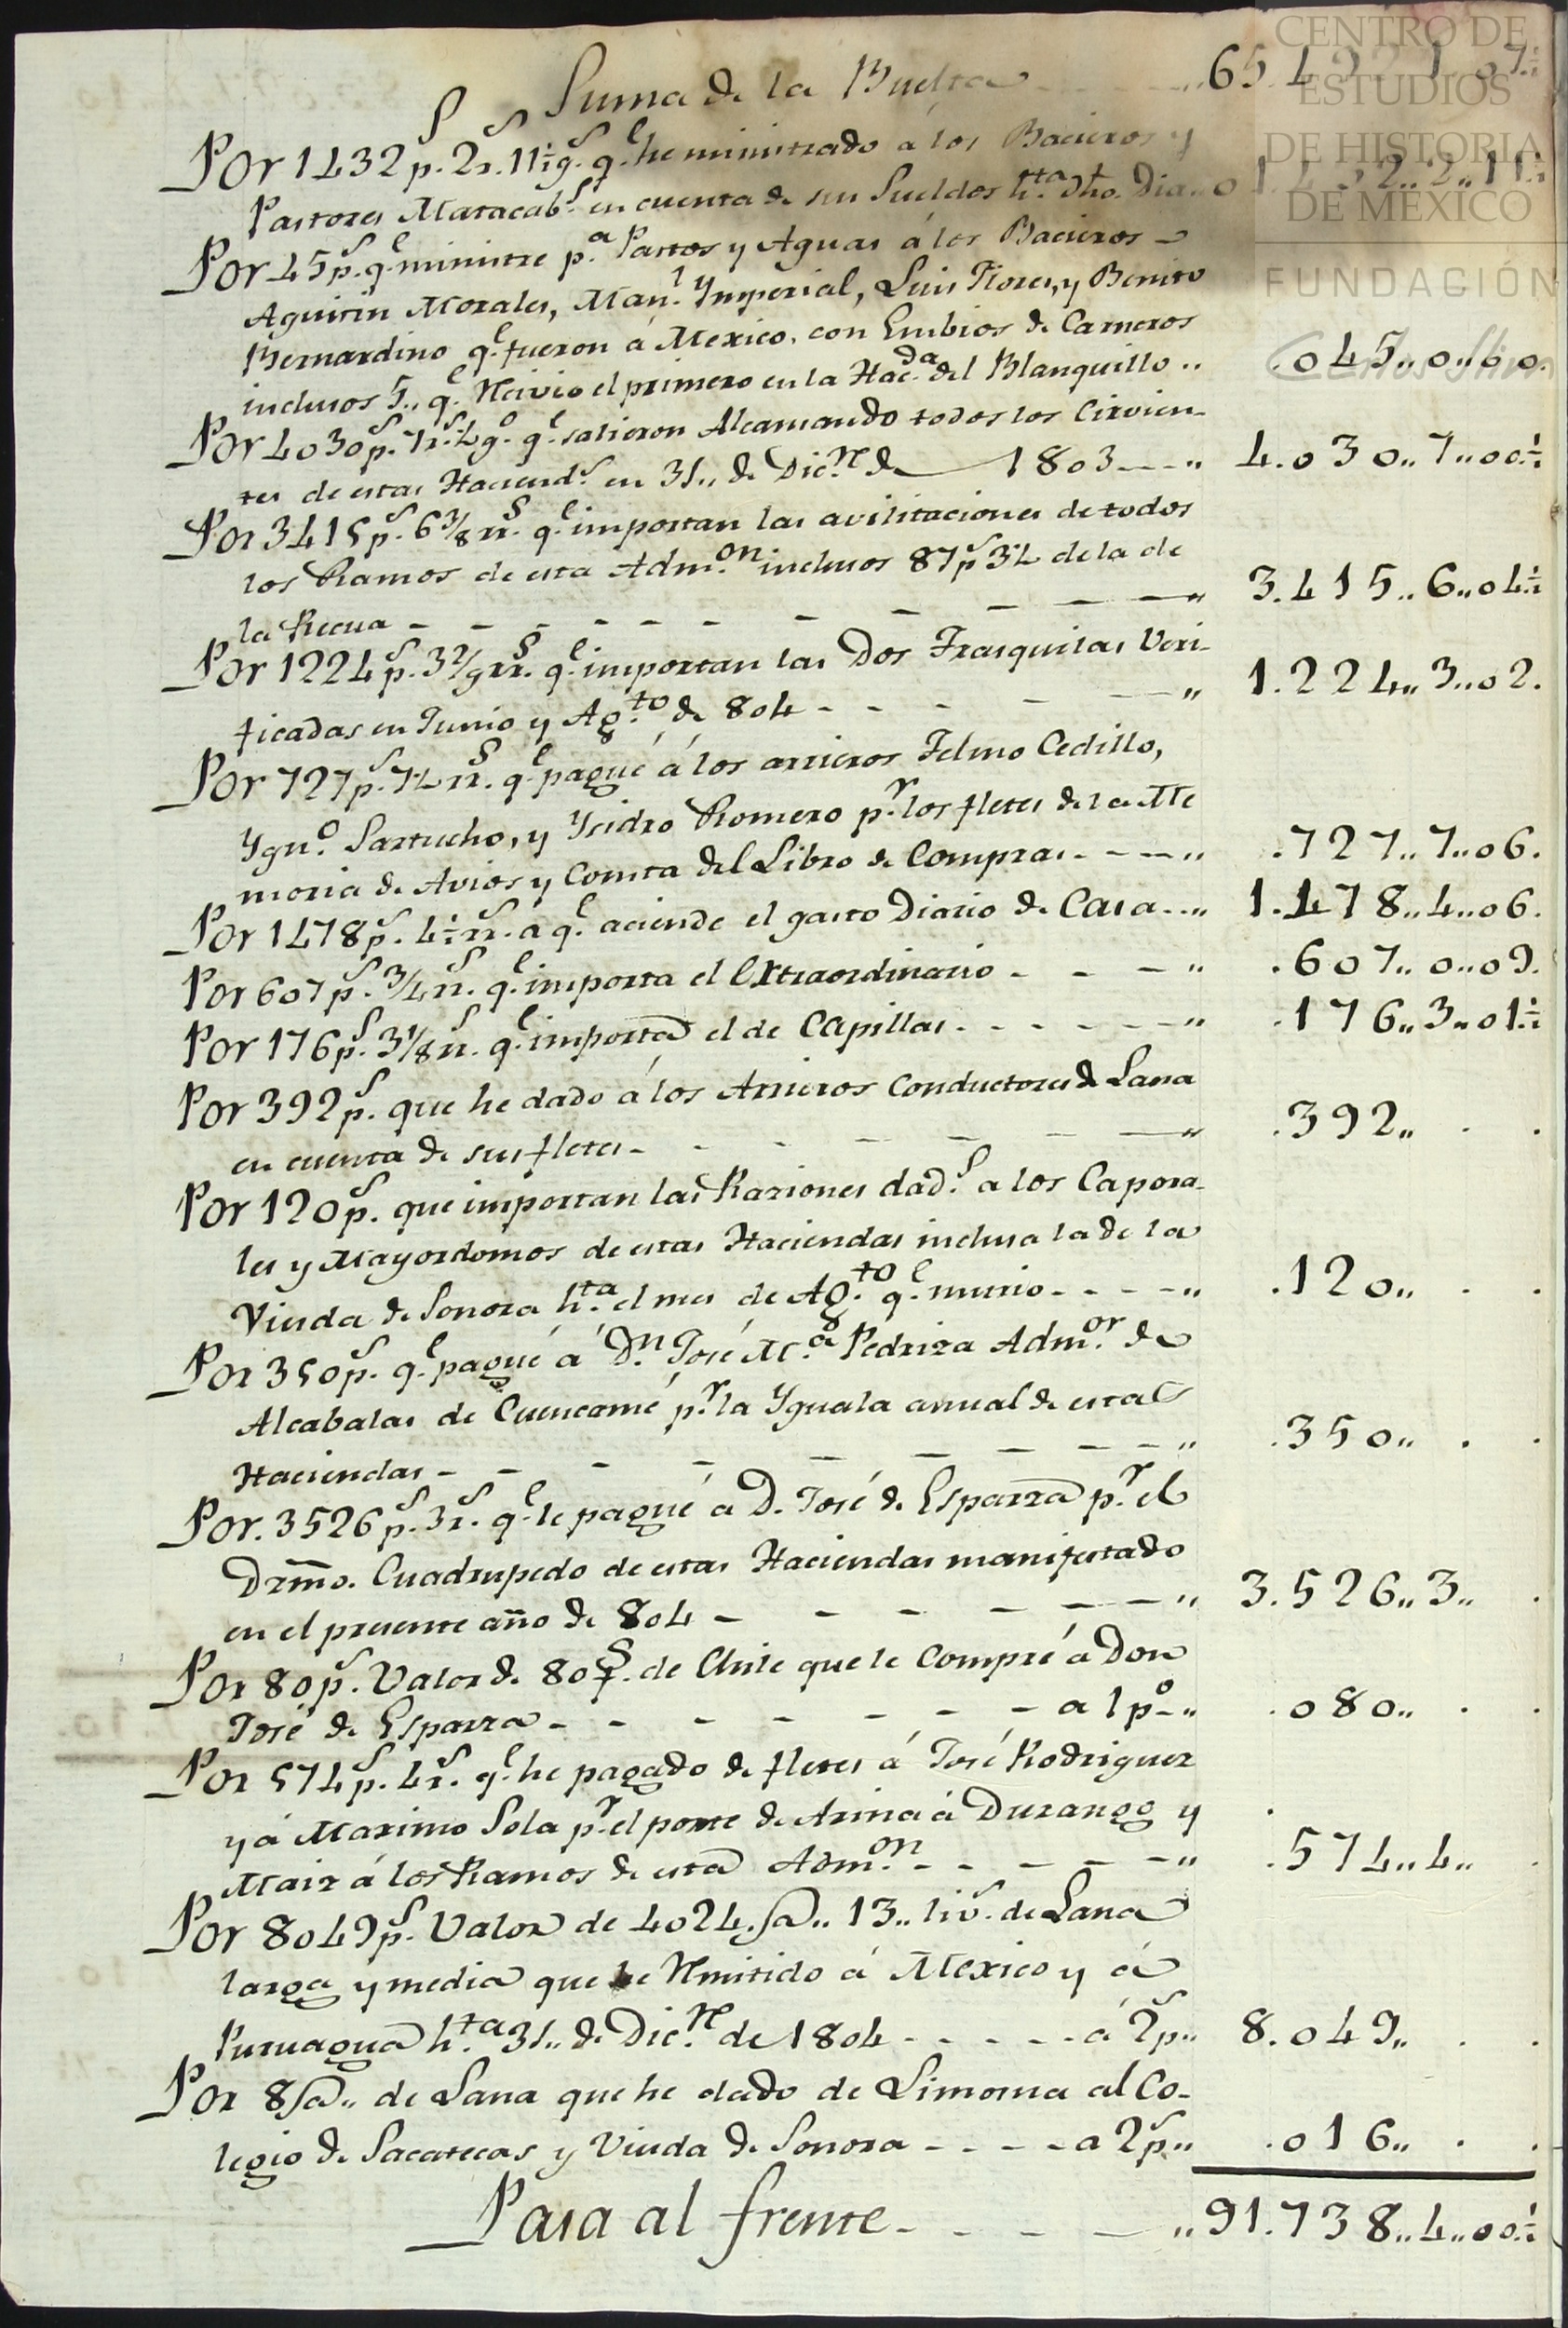 Suma de la Buelta
Por 1432 ps. 2 rs. 11½ gs. qe. he ministrado á los Bacieros y
Pastores Matacabs. en cuenta de sus Sueldos hta. dho. Dia 01.432..2..11½
Por 45 ps. qe. ministre pa. Pastos y Aguas á los Bacieros
Agustin Morales, Manl. Ymperial, Luis Flores, y Benito
Bernardino qe. fueron á Mexico, con Embios de Carneros
inclusos 5,, qe. Recivio el primero en la Hacda. del Blanquillo .. .045..0..00.
Por 4030 ps. 7 rs. ½ go. qe. salieron Alcansando todos los Cirvien-
tes de estas Haciends. en 31,, de Dice. de 1803 ,, 4.030..7..00½
Por 3415 ps. 6 3/8 rrs. qe. importan las avilitaciones de todos
los Ramos de esta Admon. inclusos 87 ps 3½ de la de
la Recua ,, 3.415..6..04½
Por 1224 ps. 3 2/9 rrs. qe. importan las Dos Trasquilas Veri-
ficadas en Junio y Agto. de 804 ,, 1.224..3..02.
Por 727 ps. 7½ rrs. qe. pagué á los arrieros Telmo Cedillo,
Ygno. Sartucho, y Ysidro Romero pr. los fletes de la Me
moria de Avios y Consta del Libro de Compras ,, .727..7..06.
Por 1478 ps. 4½ rrs. á qe. aciende el gasto Diario de Casa ,, 1.478..4..06.
Por 607 ps. 3/4 rrs. qe. importa el Extraordinario ,, .607..0..09.
Por 176 ps. 3 1/8 rrs. qe. importa el de Capillas ,, .176..3..01½
Por 392 ps. que he dado á los Arrieros Conductores de Lana
en cuenta de sus fletes ,, .392,, . .
Por 120 ps. que importan las Raziones dads. a los Capora-
les y Mayordomos de estas Haciendas inclusa la de la
Viuda de Sonora hta. el mes de Agto. qe. murio ,, .120,, . .
Por 350 ps. qe. pagué á Dn. José Ma. Pedriza Admor. de
Alcabalas de Cuencamé pr. la Yguala anual de estas
Haciendas ,, .350,, . .
Por. 3526 ps. 3 rs. qe. le pagué á D. José de Esparza pr. el
Dzmo. Cuadrupedo de estas Haciendas manifestado
en el presente año de 804 ,, 3.526..3,, .
Por 80 ps. Valor de 80 fs. de Chile que le Compré á Don
José de Esparza a 1 po ,, .080,, . .
Por 574 ps. 4 rs. qe. he pagado de fletes á José Rodriguez
y á Maximo Sola pr. el porte de Arina á Durango y
Maiz á los Ramos de esta Admon. ,, .574..4,, .
Por 8049 ps. Valor de 4024 @,, 13,, livs. de Lana
larga y media que he Rmitido á Mexico y á
Puruagua hta. 31,, de Dice. de 1804 á 2 ps ,, 8.049,, . .
Por 8 @,, de Lana que he dado de Limosna al Co-
legio de Sacatecas y Viuda de Sonora a 2 ps ,, .016,, . .
Pasa al frente ,, 91.738..4..00½
CENTRO DE
ESTUDIOS
DE HISTORIA
DE MÉXICO
FUNDACIÓN
Carlos Slim